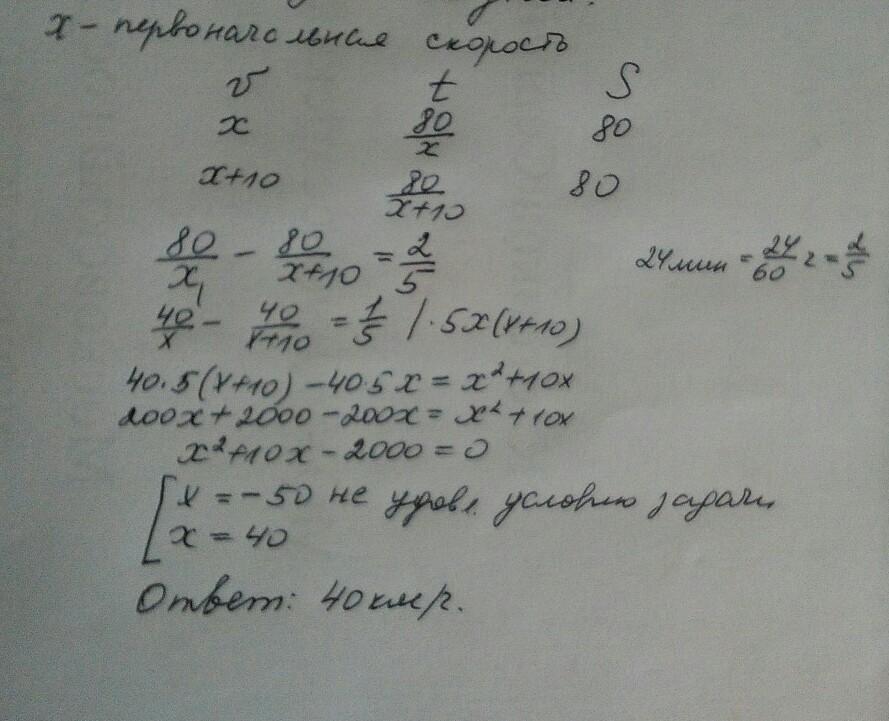 x - первоначальная скорость
v t S
x 80/x 80
x+10 80/(x+10) 80
80/x - 80/(x+10) = 2/5 24 мин = 24/60 г = 2/5
40/x - 40/(x+10) = 1/5 /·5x(x+10)
40·5(x+10) - 40·5x = x²+10x
200x + 2000 - 200x = x² + 10x
x²+10x - 2000 = 0
[ x = -50 не удовл. условию задачи
x = 40
Ответ: 40 км/г.